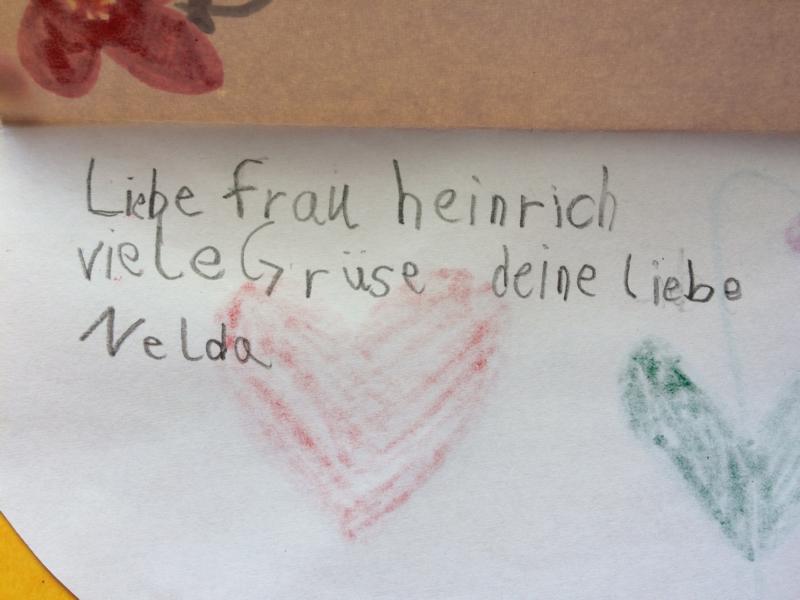 Liebe frau heinrich
viele Grüse deine liebe
Nelda